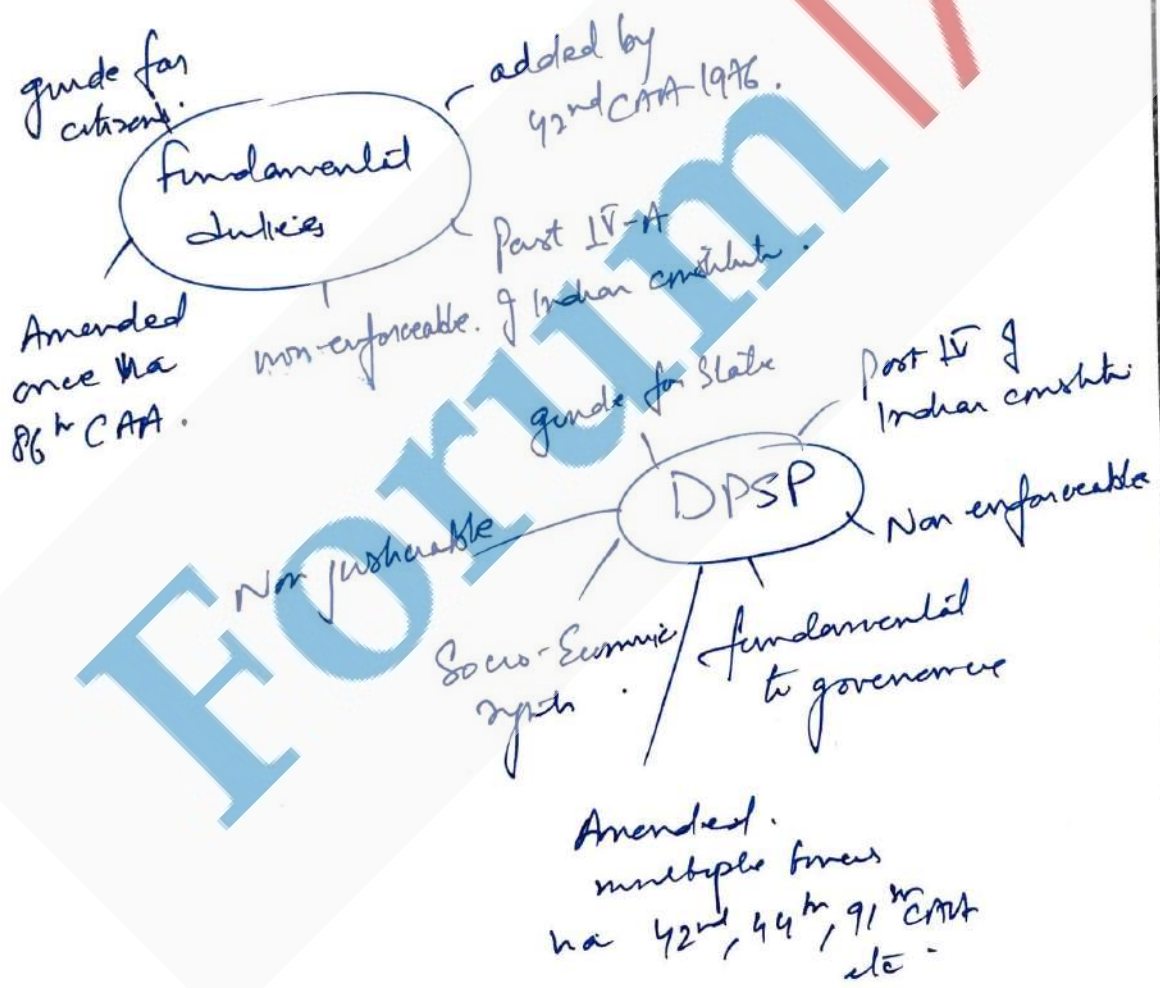 guide for
citizens.
added by
42nd CAA-1976.
fundamental
duties
Part IV-A
of Indian constitution.
non-enforceable.
Amended
once via
86th CAA.
guide for State
Part IV of
Indian constitu
DPSP
Non enforceable
Non justiciable
Socio-Economic
rights.
fundamental
to governance
Amended.
multiple times
via 42nd, 44th, 91st CAA
etc.
Forum